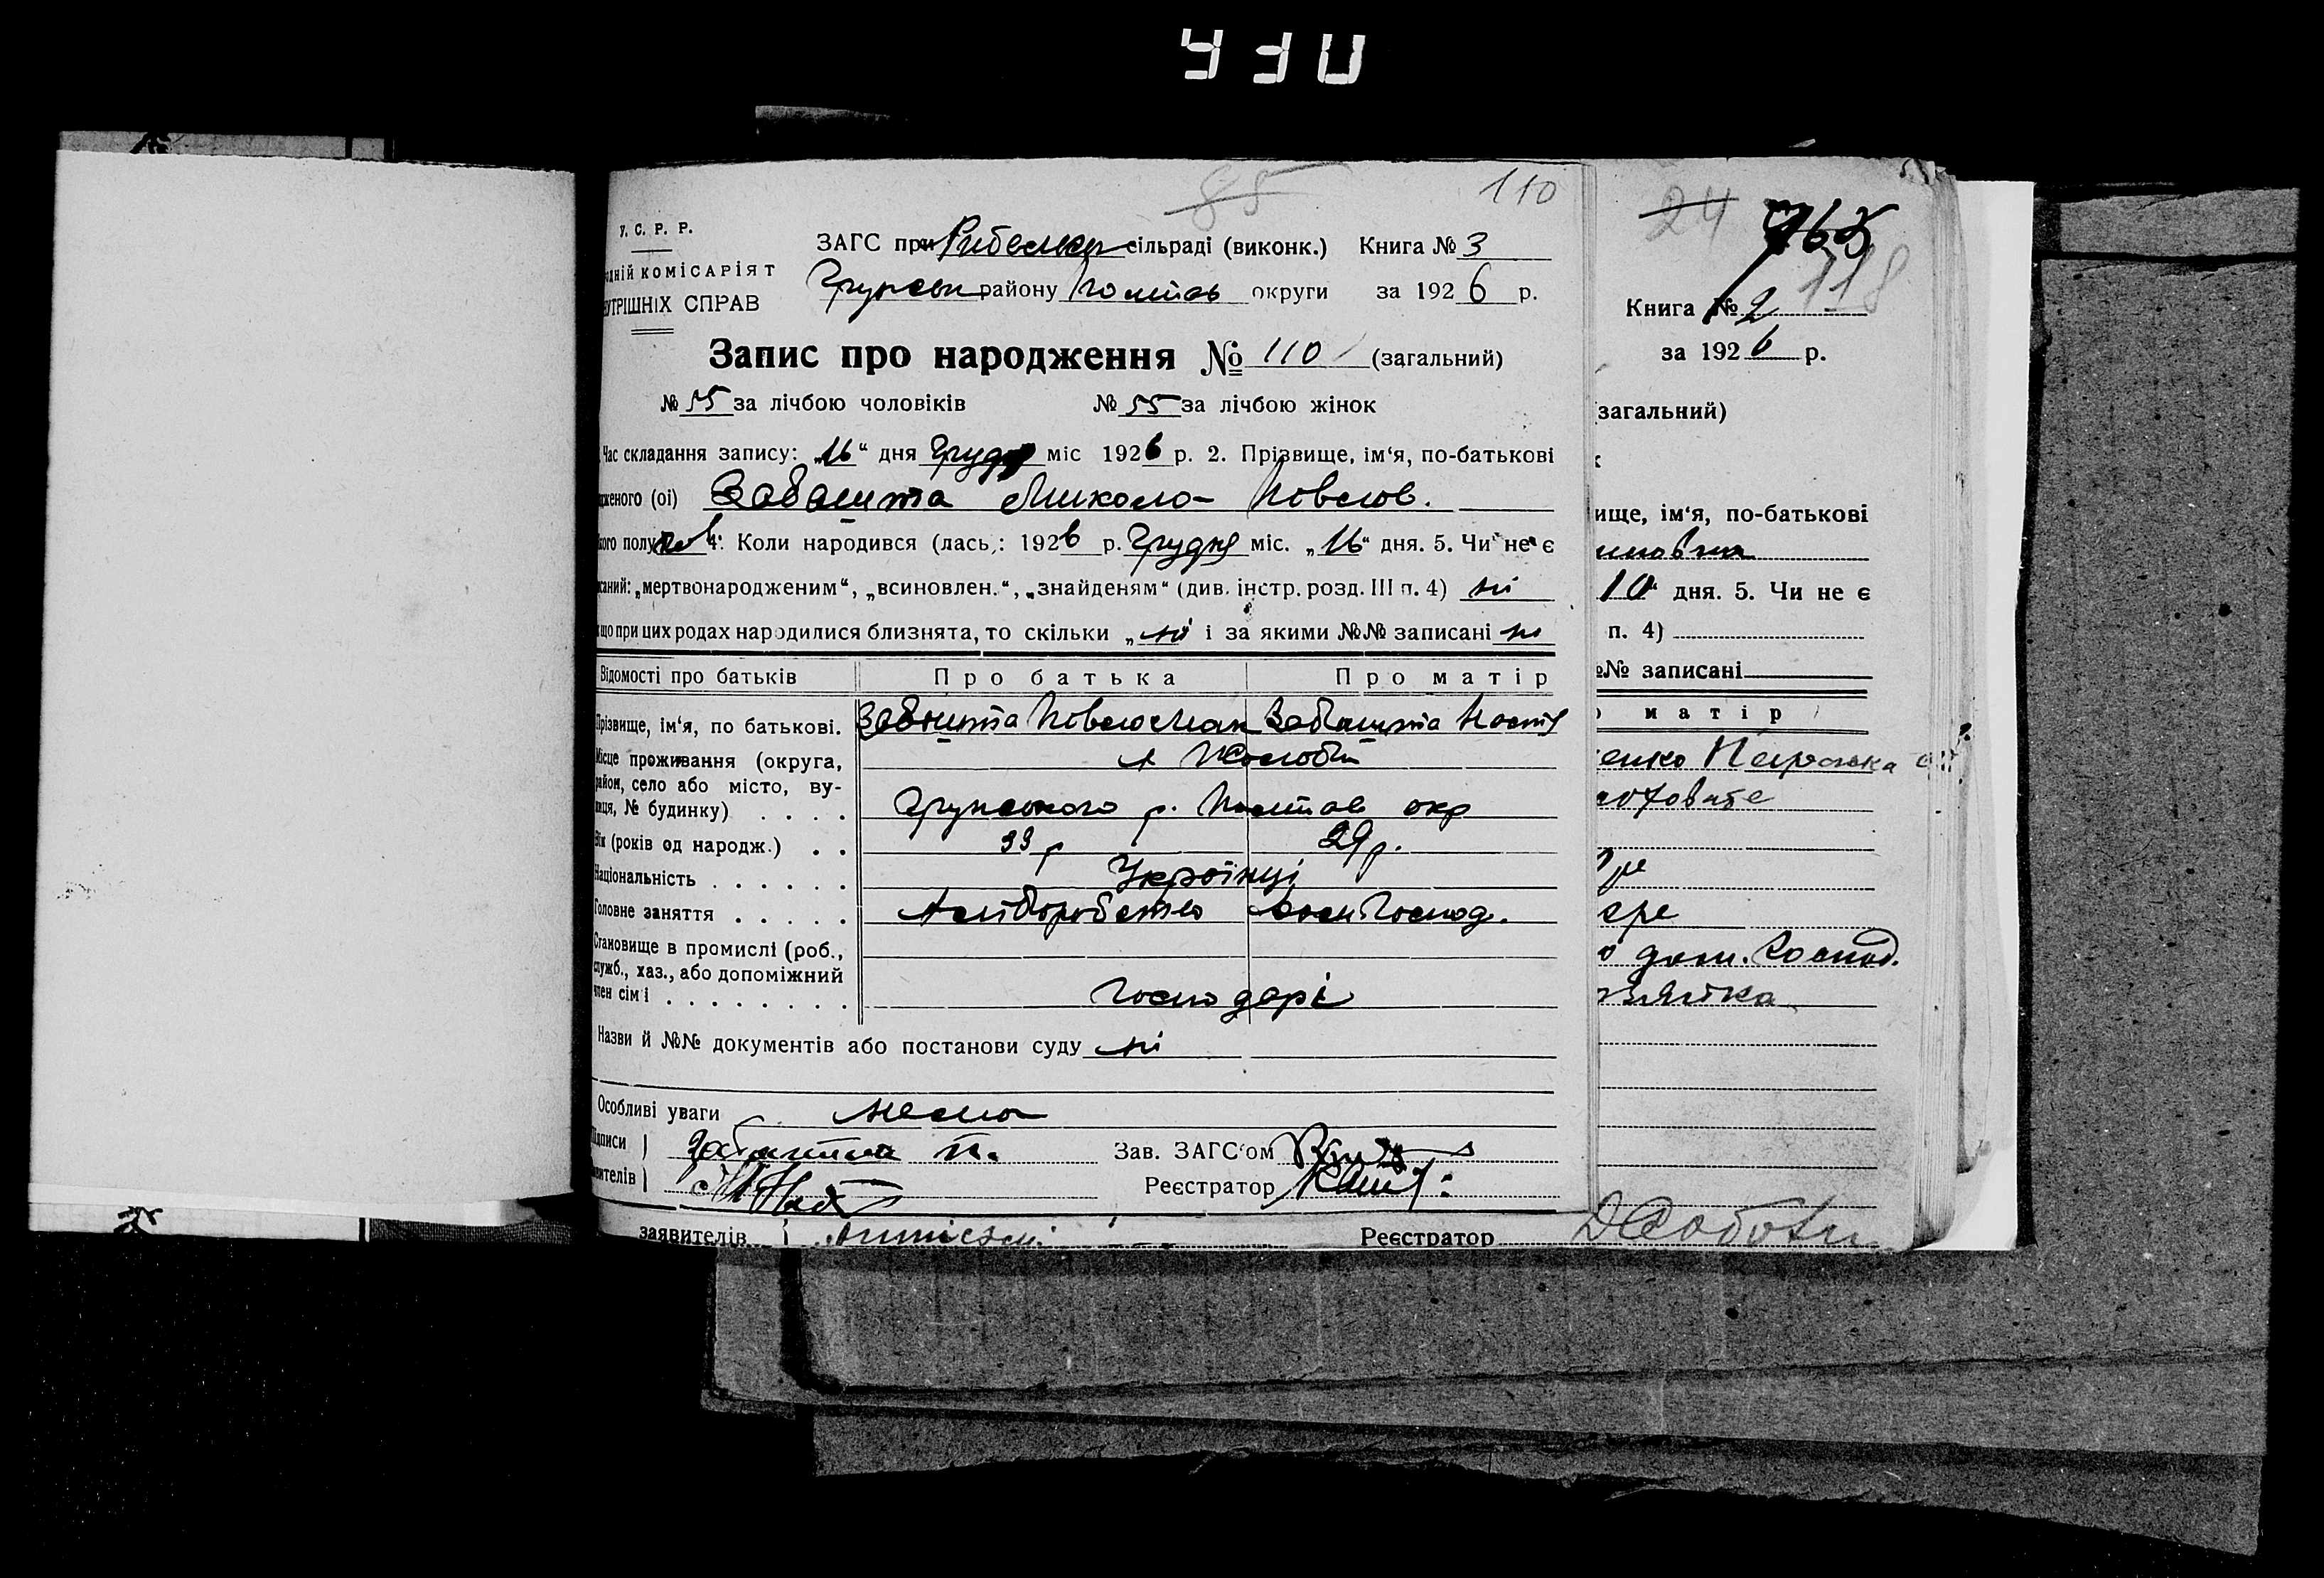 430
85
110
У. С. Р. Р.
ЗАГС при сільраді (виконк.) Книга № 3
одній КОМІСАРІЯТ
Грунськ району Полтав округи за 1926 р.
УТРІШНІХ СПРАВ
Запис про народження № 110 (загальний)
№ 55 за лічбою чоловіків № 55 за лічбою жінок
Час складання запису: „16“ дня Грудн міс 1926 р. 2. Прізвище, ім‘я, по-батькові
дженого (ої) Забашта Микола Павлов.
кого полу чол 4. Коли народився (лась): 1926 р. Грудня міс. „16“ дня. 5. Чи не є
саний: „мертвонародженим“, „всиновлен.“, „знайденям“ (див. інстр. розд. III п. 4) ні
що при цих родах народилися близнята, то скільки „ні і за якими №№ записані ні
Відомості про батьків Про батька Про матір
Прізвище, ім‘я, по батькові. Забашта Павло Забашта Настя
Місце проживання (округа,
район, село або місто, ву-
лиця, № будинку) . . . . Грунського р. Полтав окр
Вік (років од народж.) . . 33 р 29 р.
Національність . . . . . . Українці
Головне заняття . . . . . Хліборобство Господ.
Становище в промислі (роб.,
служб., хаз., або допоміжний
член сім‘ї . . . . . . . . Господарі
Назви й №№ документів або постанови суду ні
Особливі уваги нема
Підписи Забашта П. Зав. ЗАГС‘ом
явителів Реєстратор
заявителів Реєстратор
24
118
Книга № 2
за 1926 р.
загальний)
ище, ім‘я, по-батькові
10“ дня. 5. Чи не є
п. 4)
№№ записані
о матір
енко Параска
дом. Господ.